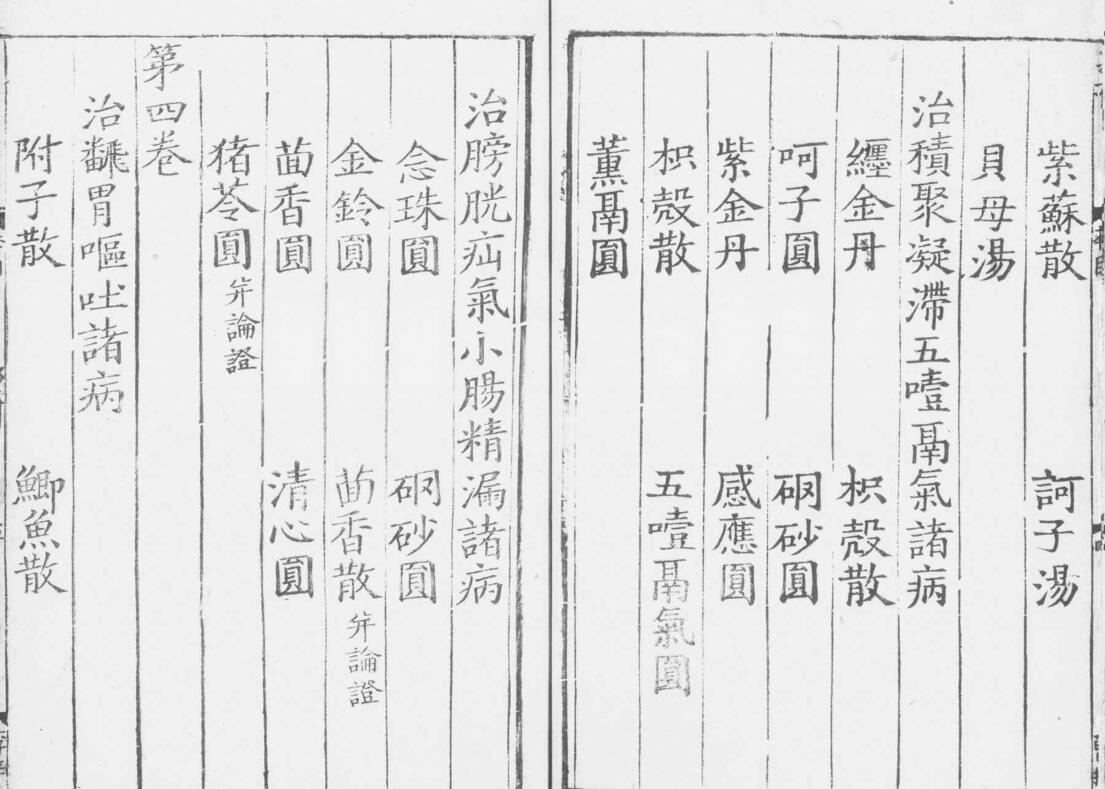 紫蘇散 訶子湯
貝母湯
治積聚凝滯五噎鬲氣諸病
纏金丹 枳殼散
呵子圓 硇砂圓
紫金丹 感應圓
枳殼散 五噎鬲氣圓
薰鬲圓
治膀胱疝氣小腸精漏諸病
念珠圓 硇砂圓
金鈴圓 茴香散并論證
茴香圓 清心圓
猪苓圓并論證
第四卷
治飜胃嘔吐諸病
附子散 鯽魚散